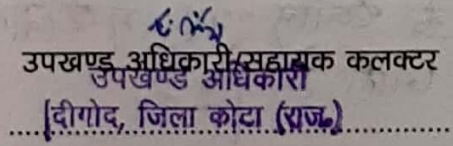 उपखण्ड अधिकारी/सहायक कलक्टर
उपखण्ड अधिकारी
दीगोद, जिला कोटा (राज०)